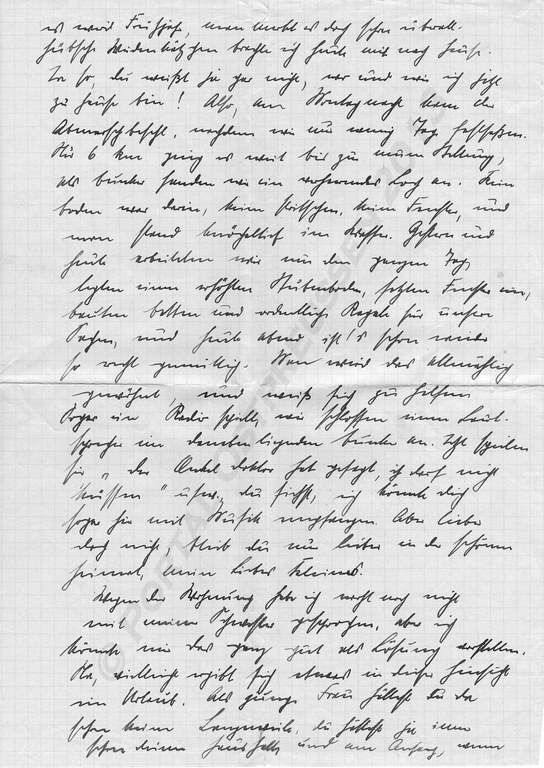 es wird Frühjahr, man merkt es doch schon überall.
Hübsche Weidenkätzchen brachte ich heute mit nach Hause.
Ja so, du weißt ja gar nicht, wo und wie ich jetzt
zu Hause bin! Also, am Montagnacht kam der
Abmarschbefehl, nachdem wir nur wenig Tage festsaßen.
Nur 6 km ging es weit bis zu unserer Stellung,
als Bunker fanden wir ein verheerendes Loch an. Kein
Boden war darin, keine Pritschen, kein Fenster, und
man stand knöcheltief im Wasser. Gestern und
heute arbeiteten wir nun den ganzen Tag,
legten einen erhöhten Stubenboden, setzten Fenster ein,
bauten Betten und ordentliche Regale für unsere
Sachen, und heute abend ist's schon wieder
so recht gemütlich. Man wird das allmählich
gewöhnt, und weiß sich zu helfen.
Sogar ein Radio spielt, wir schlossen einen Laut-
sprecher im danebenliegenden Bunker an. Jetzt spielen
sie "der Onkel Doktor hat gesagt, ich darf nicht
küssen" usw., du siehst, ich könnte dich
sogar hier mit Musik empfangen. Aber lieber
doch nicht, bleib du nur lieber in der schönen
Heimat, mein liebes Kleines.
Wegen der Wohnung habe ich wohl noch nicht
mit meiner Schwester gesprochen, aber ich
könnte mir das ganz gut als Lösung vorstellen.
Na, vielleicht ergibt sich etwas in dieser Hinsicht
im Urlaub. Als junge Frau hättest du da
schon keine Langeweile, du hättest ja immer
schon deinen Haushalt, und am Anfang, wenn
© PORTAL